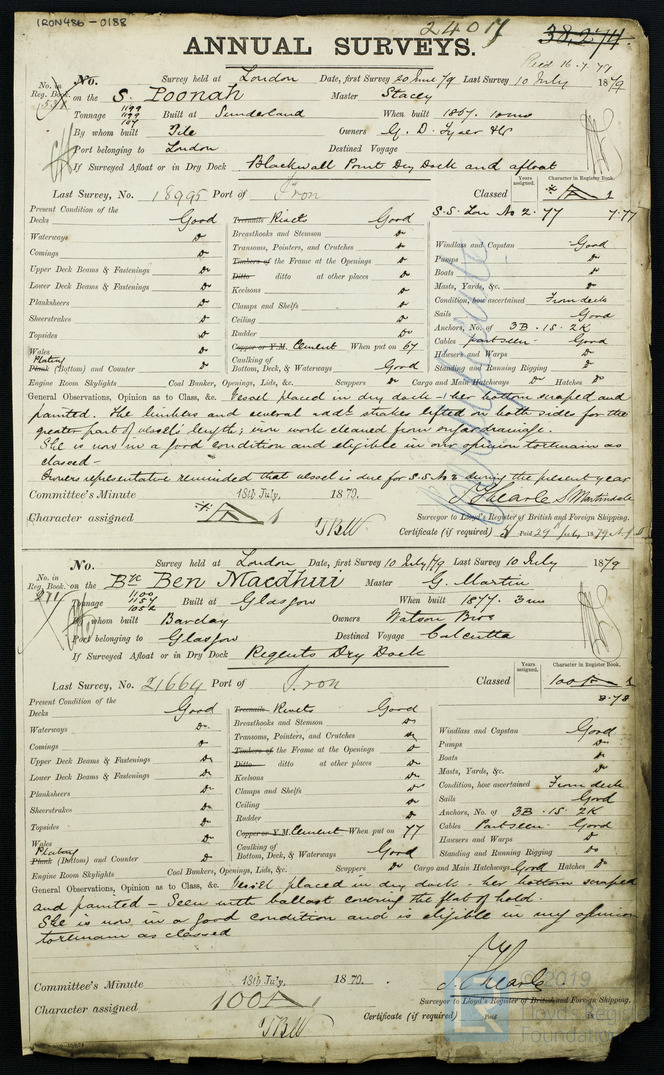 IRON486-0188
24017
38,274.
ANNUAL SURVEYS.
Rec'd 16.7.79
No. Survey held at London Date, first Survey 20 June 79 Last Survey 10 July 1879
No. in Reg. Book.
on the S. Poonah Master Stacey
Tonnage 1199 1199 Built at Sunderland When built 1867. 10mo
By whom built Pile Owners G. D. Tyser & Co
Port belonging to London Destined Voyage
If Surveyed Afloat or in Dry Dock Blackwall Point Dry Dock and afloat
Last Survey, No. 18995 Port of Iron Classed Years assigned. Character in Register Book. A 1
S.S. Lon No 2. 77 7.77
Present Condition of the
Decks Good
Waterways Do
Comings Do
Upper Deck Beams & Fastenings Do
Lower Deck Beams & Fastenings Do
Planksheers Do
Sheerstrakes Do
Topsides Do
Wales Do
Plating
Plank (Bottom) and Counter Do
Treenails Rivets Good
Breasthooks and Stemson Do
Transoms, Pointers, and Crutches Do
Timbers of the Frame at the Openings Do
Ditto ditto at other places Do
Keelsons Do
Clamps and Shelfs Do
Ceiling Do
Rudder Do
Copper or Y.M. Cement When put on 67
Caulking of
Bottom, Deck, & Waterways Good
Windlass and Capstan Good
Pumps Do
Boats Do
Masts, Yards, &c. Do
Condition, how ascertained From deck
Sails Good
Anchors, No. of 3B. 1S. 2K
Cables part seen. Good
Hawsers and Warps Do
Standing and Running Rigging Do
Engine Room Skylights Coal Bunker, Openings, Lids, &c. Scuppers Do Cargo and Main Hatchways Do Hatches Do
General Observations, Opinion as to Class, &c. Vessel placed in dry dock & her bottom scraped and
painted. The limbers and several addl strakes lifted on both sides for the
greater part of vessels length; iron work cleaned from sugar drainage.
She is now in a good condition and eligible in our opinion to remain as
classed -
Owners representative reminded that vessel is due for S.S. No 3 during the present year
Committee's Minute 18th July, 1879.
Character assigned A 1
J. Thearle S. Martindale
Surveyor to Lloyd's Register of British and Foreign Shipping.
Certificate (if required) Paid 29th July 1879
No. Survey held at London Date, first Survey 10 July /79 Last Survey 10 July 1879
No. in Reg. Book.
271
on the Bqe Ben Macdhui Master G. Martin
Tonnage 1100 1157 1052 Built at Glasgow When built 1877. 3mo
By whom built Barclay Owners Watson Bros
Port belonging to Glasgow Destined Voyage Calcutta
If Surveyed Afloat or in Dry Dock Regents Dry Dock
Last Survey, No. 21664 Port of Iron Classed Years assigned. Character in Register Book. 100 A 1
8.78
Present Condition of the
Decks Good
Waterways Do
Comings Do
Upper Deck Beams & Fastenings Do
Lower Deck Beams & Fastenings Do
Planksheers Do
Sheerstrakes Do
Topsides Do
Wales Do
Plating
Plank (Bottom) and Counter Do
Treenails Rivets Good
Breasthooks and Stemson Do
Transoms, Pointers, and Crutches Do
Timbers of the Frame at the Openings Do
Ditto ditto at other places Do
Keelsons Do
Clamps and Shelfs Do
Ceiling Do
Rudder Do
Copper or Y.M. Cement When put on 77
Caulking of
Bottom, Deck, & Waterways Good
Windlass and Capstan Good
Pumps Do
Boats Do
Masts, Yards, &c. Do
Condition, how ascertained From deck
Sails Good
Anchors, No. of 3B. 1S. 2K
Cables Part seen. Good
Hawsers and Warps Do
Standing and Running Rigging Do
Engine Room Skylights Coal Bunkers, Openings, Lids, &c. Scuppers Do Cargo and Main Hatchways Good Hatches Do
General Observations, Opinion as to Class, &c. Vessel placed in dry dock - her bottom scraped
and painted - Seen with ballast covering the flat of hold.
She is now in a good condition and is eligible in my opinion
to remain as classed
Committee's Minute 18th July, 1879.
Character assigned 100 A 1
J. Thearle.
Surveyor to Lloyd's Register of British and Foreign Shipping.
Certificate (if required) Paid 18
© 2019
Lloyd's Register
Foundation